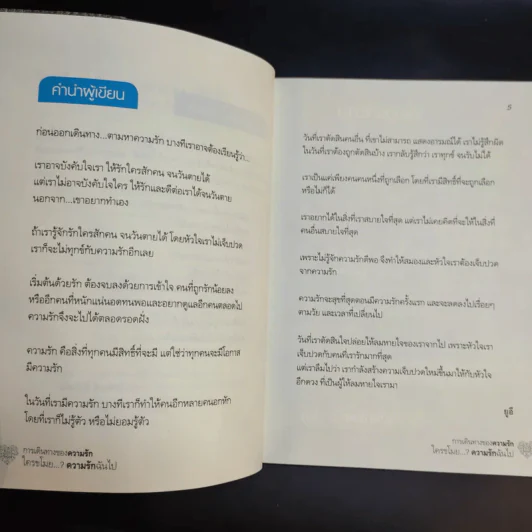 คำนำผู้เขียน
ก่อนออกเดินทาง...ตามหาความรัก บางทีเราอาจต้องเรียนรู้ว่า...
เราอาจบังคับใจเรา ให้รักใครสักคน จนวันตายได้
แต่เราไม่อาจบังคับใจใคร ให้รักและดีต่อเราได้จนวันตาย
นอกจาก...เขาอยากทำเอง
ถ้าเรารู้จักรักใครสักคน จนวันตายได้ โดยหัวใจเราไม่เจ็บปวด
เราก็จะไม่ทุกข์กับความรักอีกเลย
เริ่มต้นด้วยรัก ต้องจบลงด้วยการเข้าใจ คนที่ถูกรักน้อยลง
หรืออีกคนที่หนักแน่นอดทนพอและอยากดูแลอีกคนตลอดไป
ความรักจึงจะไปได้ตลอดรอดฝั่ง
ความรัก คือสิ่งที่ทุกคนมีสิทธิ์ที่จะมี แต่ใช่ว่าทุกคนจะมีโอกาส
มีความรัก
ในวันที่เรามีความรัก บางทีเราก็ทำให้คนอีกหลายคนอกหัก
โดยที่เราก็ไม่รู้ตัว หรือไม่ยอมรู้ตัว
การเดินทางของความรัก
ใครขโมย...? ความรักฉันไป
5
วันที่เราตัดสินคนอื่น ที่เขาไม่สามารถ แสดงอารมณ์ได้ เราไม่รู้สึกผิด
ในวันที่เราต้องถูกตัดสินบ้าง เรากลับรู้สึกว่า เราทุกข์ จนรับไม่ได้
เราเป็นแค่เพียงคนคนหนึ่งที่ถูกเลือก โดยที่เรามีสิทธิ์ที่จะถูกเลือก
หรือไม่ก็ได้
เราอยากได้ในสิ่งที่เราสบายใจที่สุด แต่เราไม่เคยคิดที่จะให้ในสิ่งที่
คนอื่นสบายใจที่สุด
เพราะไม่รู้จักความรักดีพอ จึงทำให้สมองและหัวใจเราต้องเจ็บปวด
จากความรัก
ความรักจะสุขที่สุดตอนมีความรักครั้งแรก และจะลดลงไปเรื่อยๆ
ตามวัย และเวลาที่เปลี่ยนไป
วันที่เราตัดสินใจปล่อยให้ลมหายใจของเราจากไป เพราะหัวใจเรา
เจ็บปวดกับคนที่เรารักมากที่สุด
แต่เราลืมไปว่า เรากำลังสร้างความเจ็บปวดใหม่ขึ้นมาให้กับหัวใจ
อีกดวง ที่เป็นผู้ให้ลมหายใจเรามา
ยูอี
การเดินทางของความรัก
ใครขโมย...? ความรักฉันไป